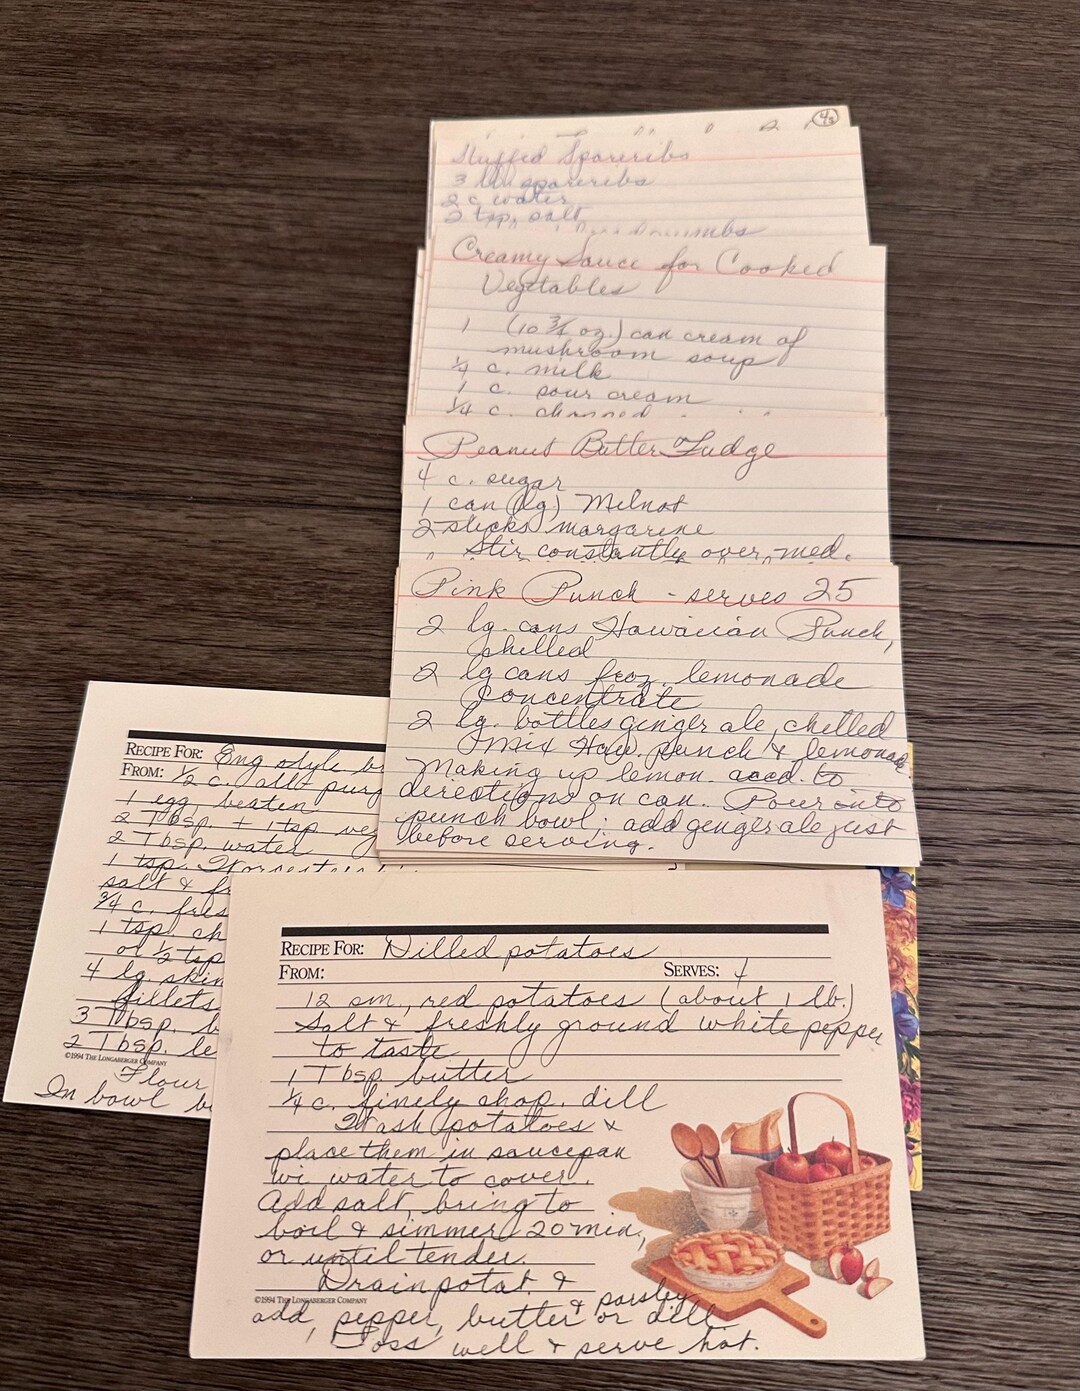 4/8
Stuffed Spareribs
3 lbs spareribs
2 c. water
2 tsp. salt
Creamy Sauce for Cooked
Vegetables
1 (10 3/4 oz.) can cream of
mushroom soup
1/4 c. milk
1 c. sour cream
1/4 c. chopped
Peanut Butter Fudge
4 c. sugar
1 can (lg) Milnot
2 sticks margarine
Stir constantly over med.
Pink Punch - serves 25
2 lg. cans Hawaiian Punch,
chilled
2 lg cans froz. lemonade
concentrate
2 lg. bottles ginger ale, chilled
Mix Haw. punch & lemonade
making up lemon. accd. to
directions on can. Pour into
punch bowl; add ginger ale just
before serving.
RECIPE FOR: Eng style
FROM: 1/2 c. all purp
1 egg, beaten
2 Tbsp. + 1 tsp veg
2 Tbsp. water
1 tsp. Worcestersh
salt & fr
3/4 c. fres
1 tsp. ch
or 1/2 tsp
4 lg. skin
fillets
3 Tbsp. b
2 Tbsp. le
©1994 THE LONGABERGER COMPANY
Flour
In bowl b
RECIPE FOR: Dilled potatoes
FROM: SERVES: 4
12 sm. red potatoes (about 1 lb.)
Salt & freshly ground white pepper
to taste
1 Tbsp. butter
1/4 c. finely chop. dill
Wash potatoes &
place them in saucepan
wi water to cover.
Add salt, bring to
boil & simmer 20 min,
or until tender.
Drain potat. &
©1994 THE LONGABERGER COMPANY
add, pepper, butter & parsley or dill
Toss well & serve hot.